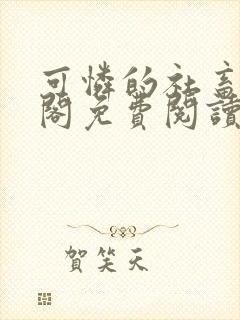 可憐的社畜
閣免費閱讀
賀笑天